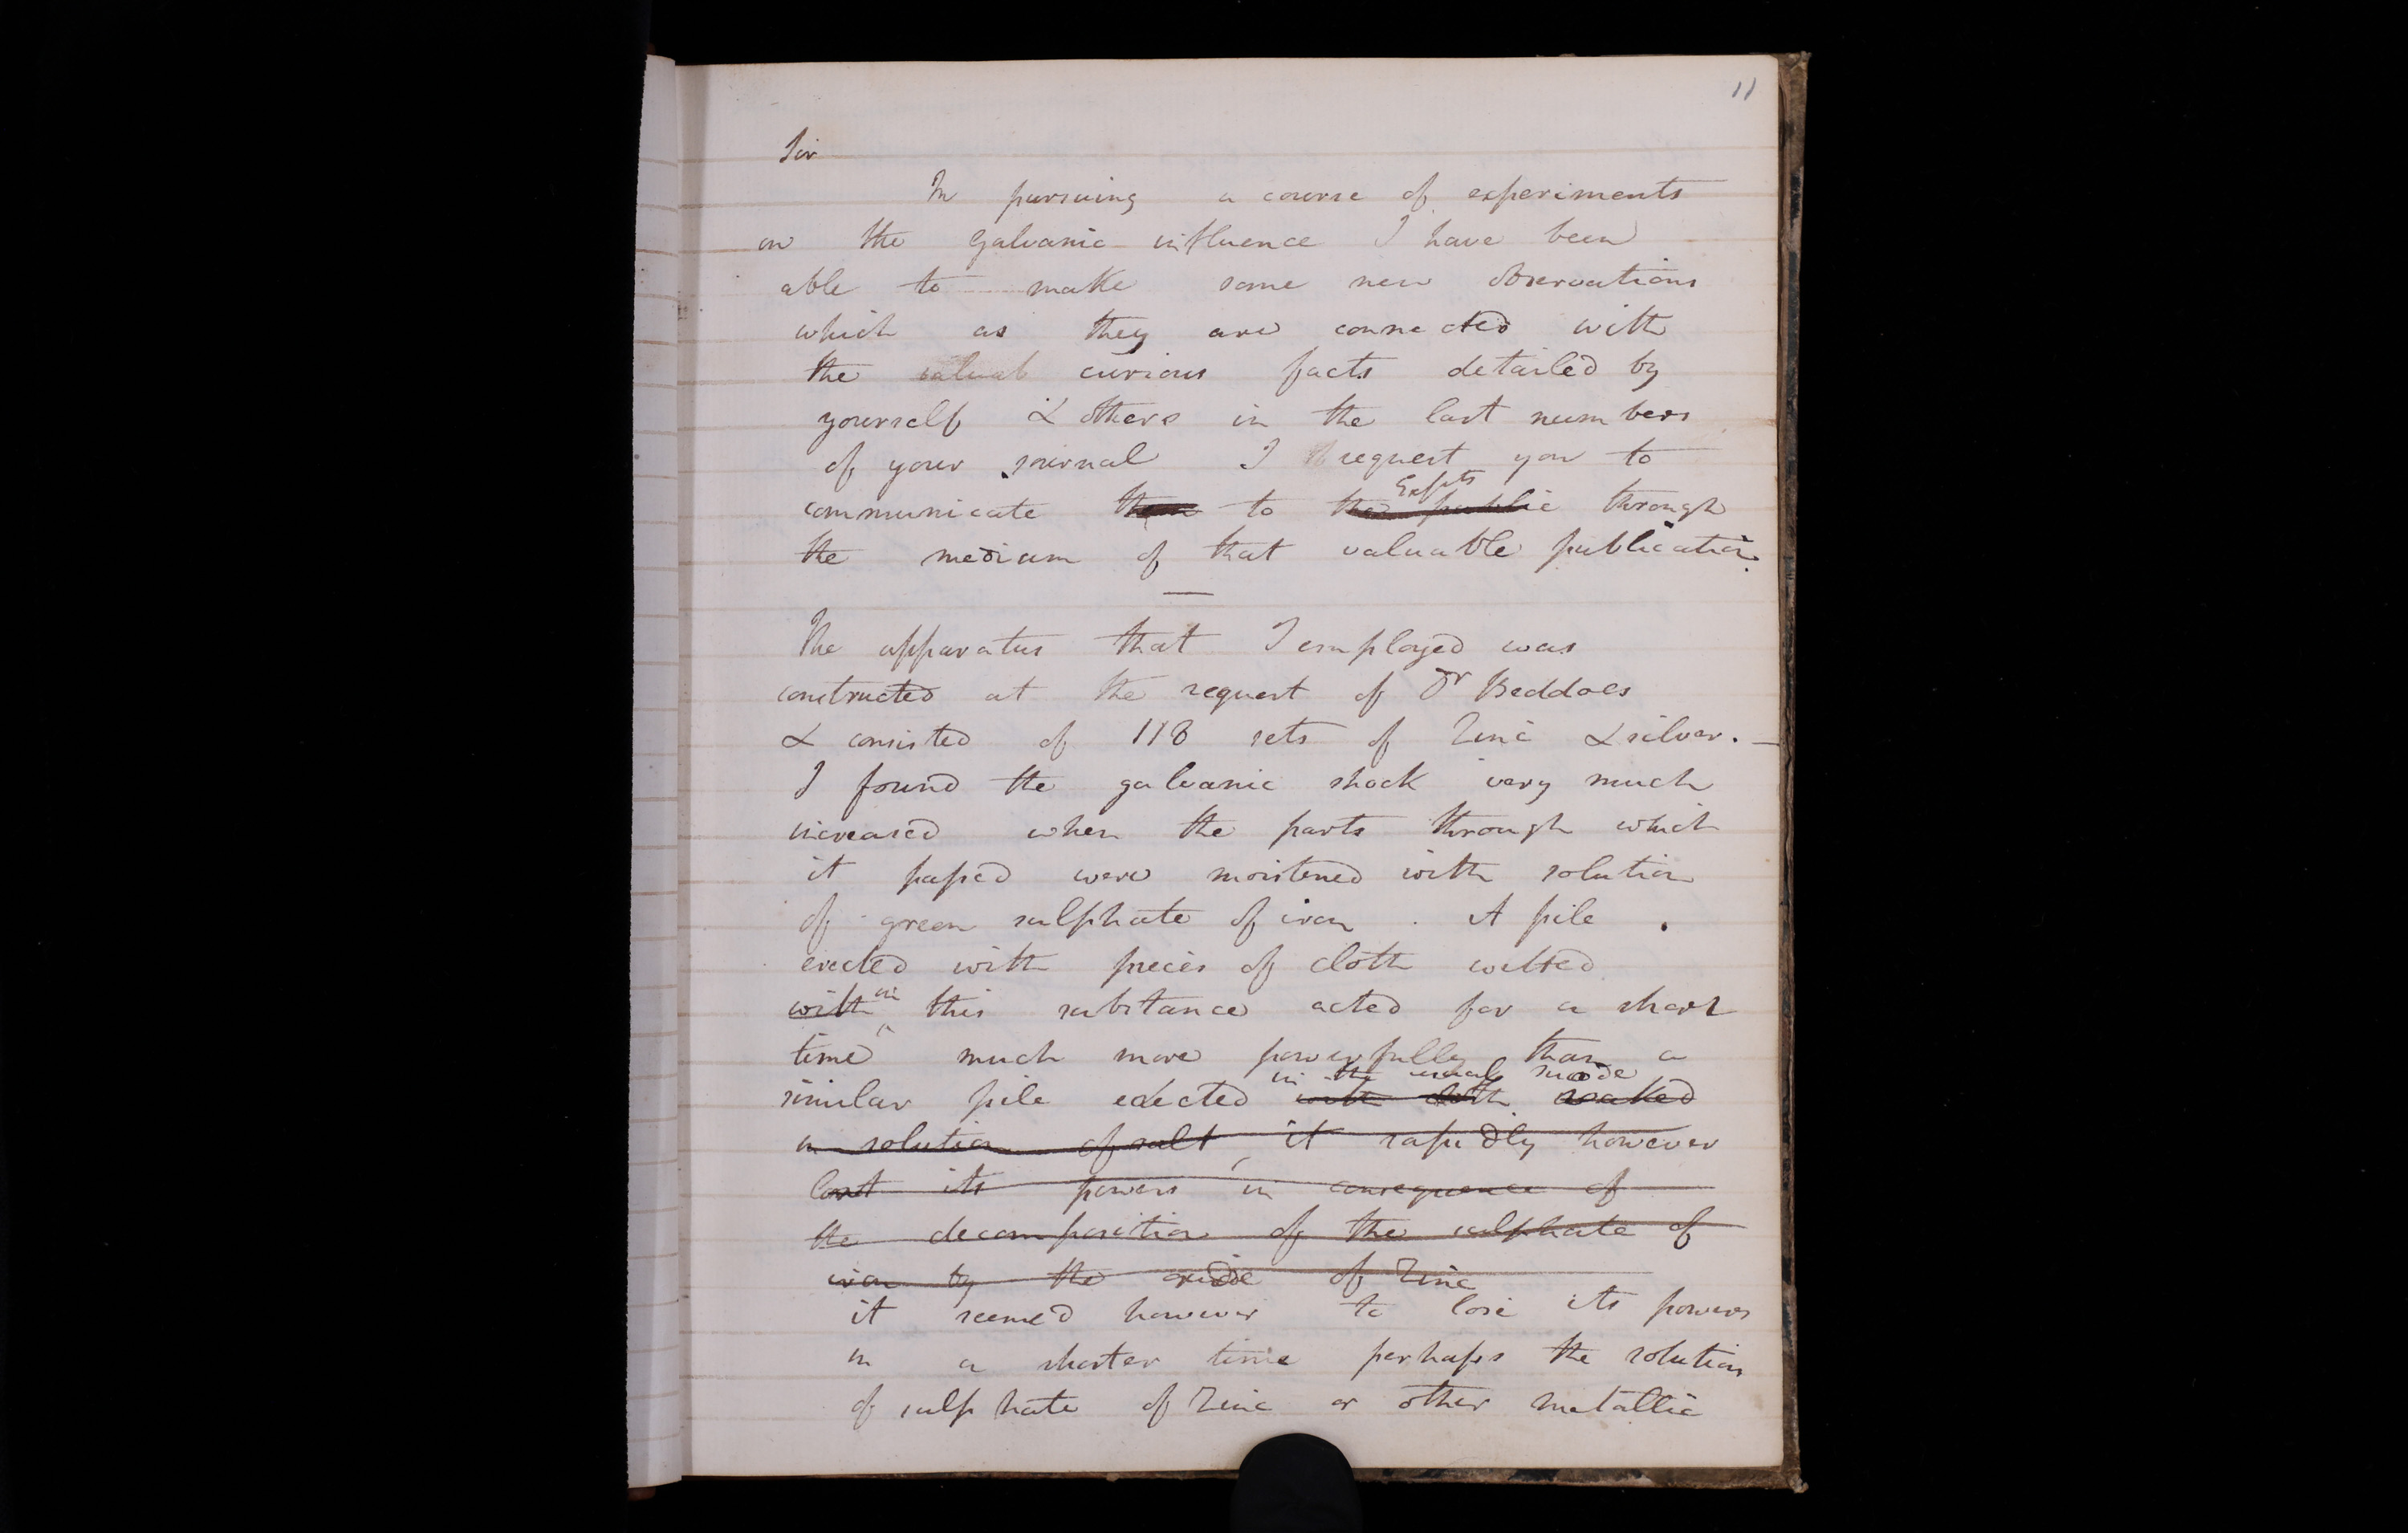 11
Sir
In pursuing a course of experiments
on the galvanic influence I have been
able to make some new observations
which as they are connected with
the valuab curious facts detailed by
yourself & others in the last numbers
of your journal I request you to
communicate them to the public through
Expts
the medium of that valuable publication.
—
The apparatus that I employed was
constructed at the request of Dr Beddoes
& consisted of 118 sets of Zinc & silver. —
I found the galvanic shock very much
increased when the parts through which
it passed were moistened with solution
of green sulphate of iron. A pile
erected with pieces of cloth wetted
with in this substance acted for a short
time much more powerfully than a
in the usual mode
similar pile erected with cloth soaked
in solution of salt it rapidly however
lost its powers in consequence of
the decomposition of the sulphate of
iron by the oxide of Zinc
it seemed however to lose its powers
in a shorter time perhaps the solution
of sulphate of Zinc or other metallic